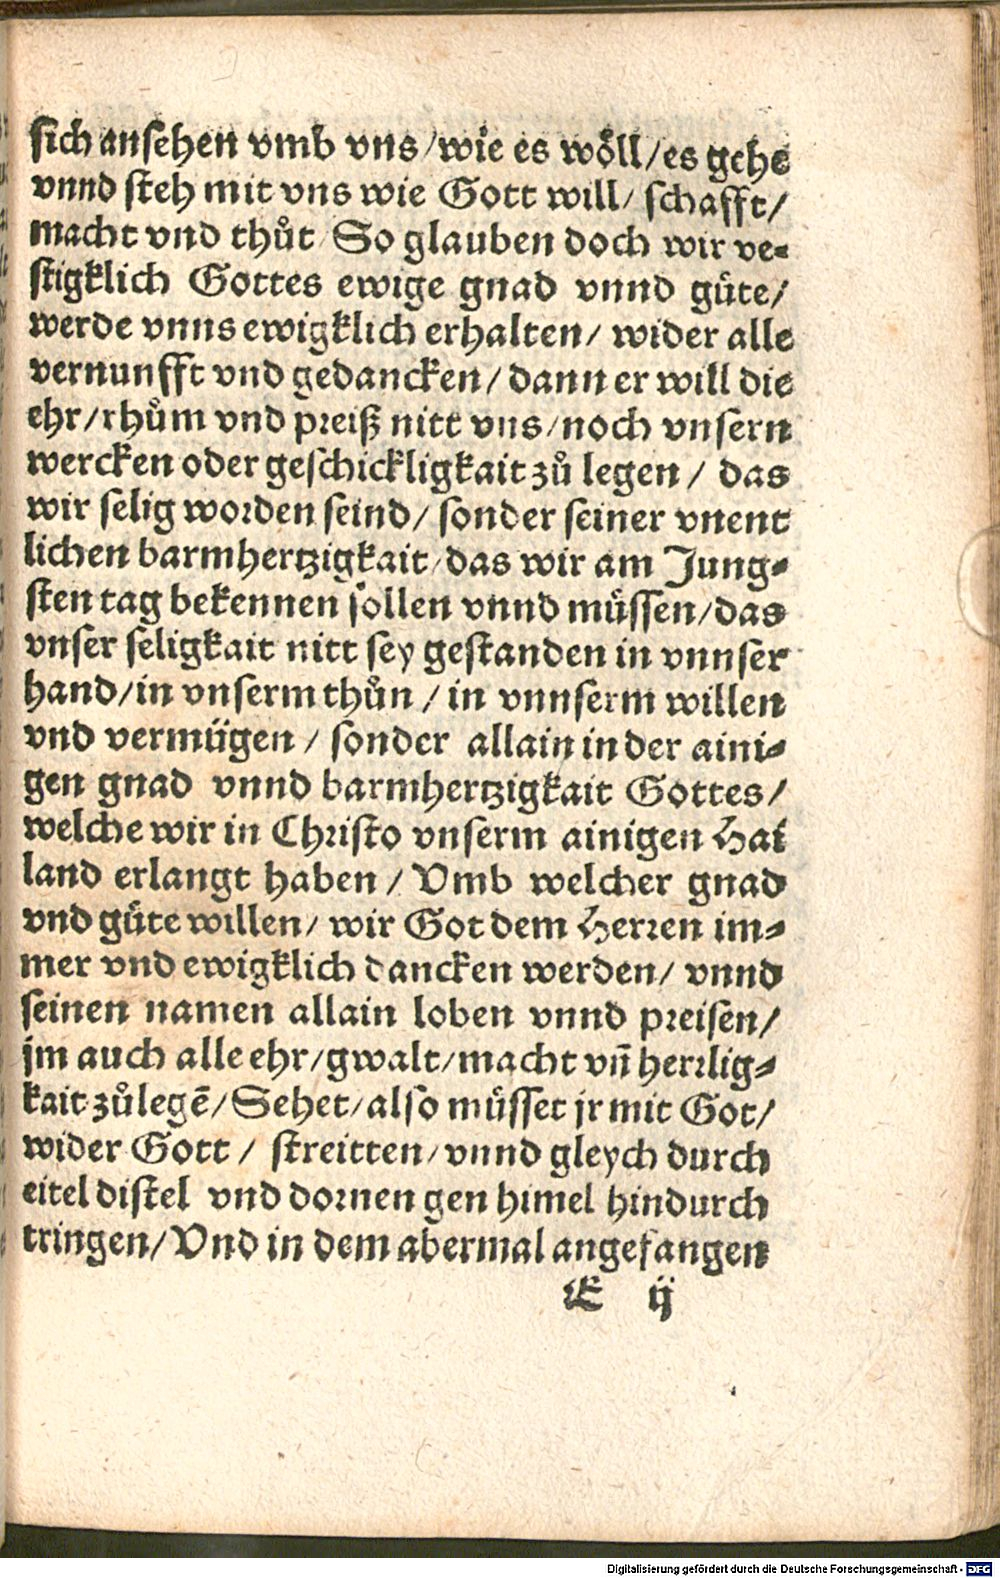 sich ansehen vmb vns / wie es wöll / es gehe
vnnd steh mit vns wie Gott will / schafft /
macht vnd thůt / So glauben doch wir ve-
stigklich Gottes ewige gnad vnnd güte /
werde vnns ewigklich erhalten / wider alle
vernunfft vnd gedancken / dann er will die
ehr / rhům vnd preiß nitt vns / noch vnsern
wercken oder geschickligkait zů legen / das
wir selig worden seind / sonder seiner vnent
lichen barmhertzigkait / das wir am Jung-
sten tag bekennen sollen vnnd müssen / das
vnser seligkait nitt sey gestanden in vnnser
hand / in vnserm thůn / in vnnserm willen
vnd vermügen / sonder allain in der aini-
gen gnad vnnd barmhertzigkait Gottes /
welche wir in Christo vnserm ainigen Hai
land erlangt haben / Vmb welcher gnad
vnd güte willen / wir Got dem Herren im-
mer vnd ewigklich dancken werden / vnnd
seinen namen allain loben vnnd preisen /
jm auch alle ehr / gwalt / macht vñ herrlig-
kait zůlegē / Sehet / also müsset jr mit Got /
wider Gott / streitten / vnnd gleych durch
eitel distel vnd dornen gen himel hindurch
tringen / Vnd in dem abermal angefangen
E ij
Digitalisierung gefördert durch die Deutsche Forschungsgemeinschaft - DFG